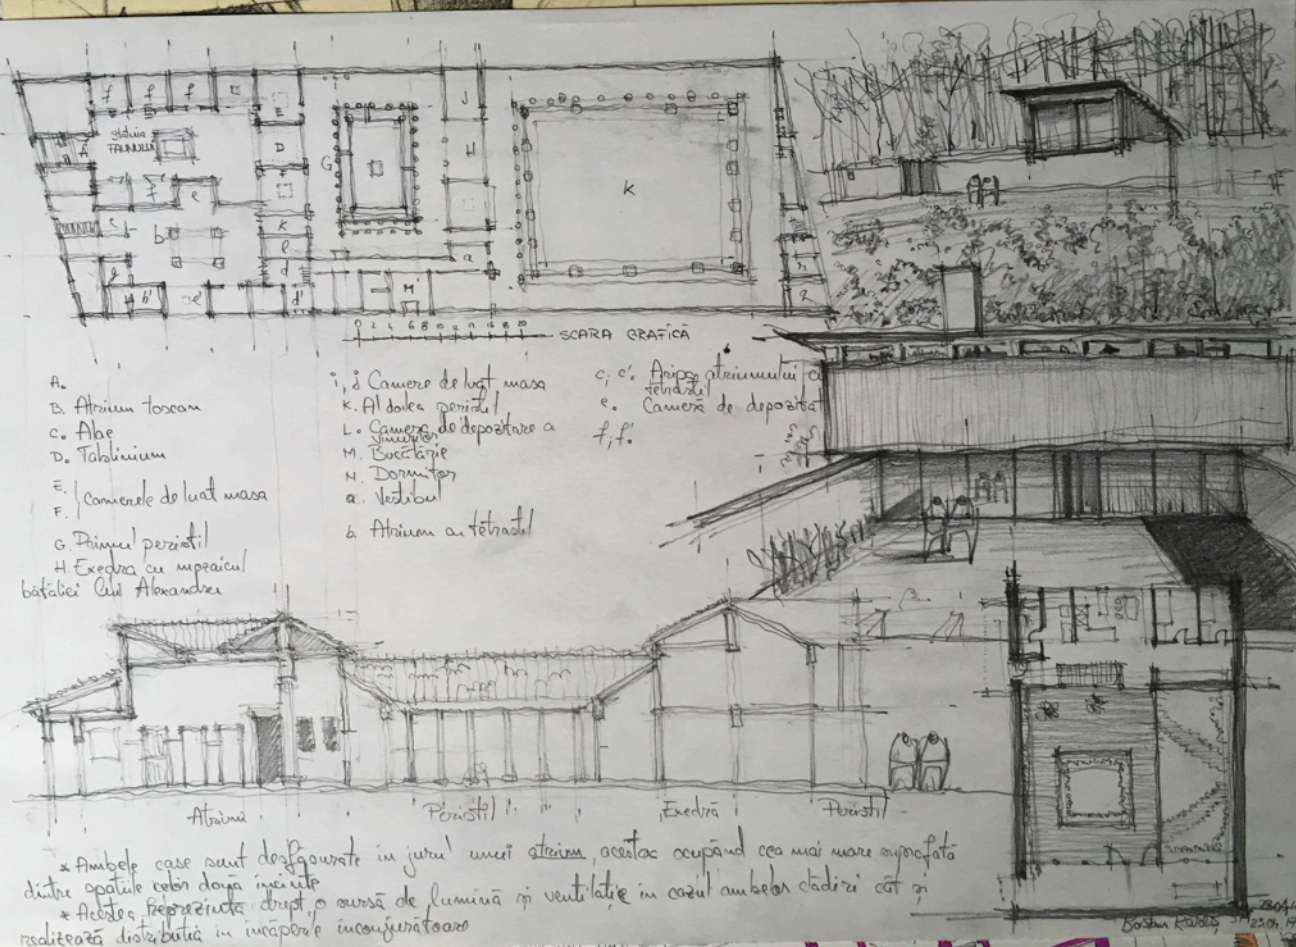 f f f
E
statuia
FAUNULUI
A
B
D
G
J
H
K
F
e
c
b
k
l
d
a
g
b'
e'
d'
M
0 2 4 6 8 10 12 14 16 18 20
SCARA GRAFICĂ
A.
B. Atrium toscan
C. Alae
D. Tablinium
E.
F. Camerele de luat masa
G. Primul peristil
H. Exedra cu mozaicul
bătăliei lui Alexandru
i, j Camere de luat masa
K. Al doilea peristil
L. Camera de depozitare a
vinurilor
M. Bucătărie
N. Dormitor
a. Vestibul
b. Atrium cu tetrastil
c, c'. Aripa atriumului cu
tetrastil
e. Cameră de depozitat
f, f'.
Atrium
Peristil
Exedră
Peristil
* Ambele case sunt desfășurate în jurul unui atrium, acestac ocupând cea mai mare suprafață
dintre spațiile celor două incinte
* Acestea reprezintă drept o sursă de lumină și ventilație în cazul ambelor clădiri cât și
realizează distribuția în încăperile înconjurătoare
23.04.19